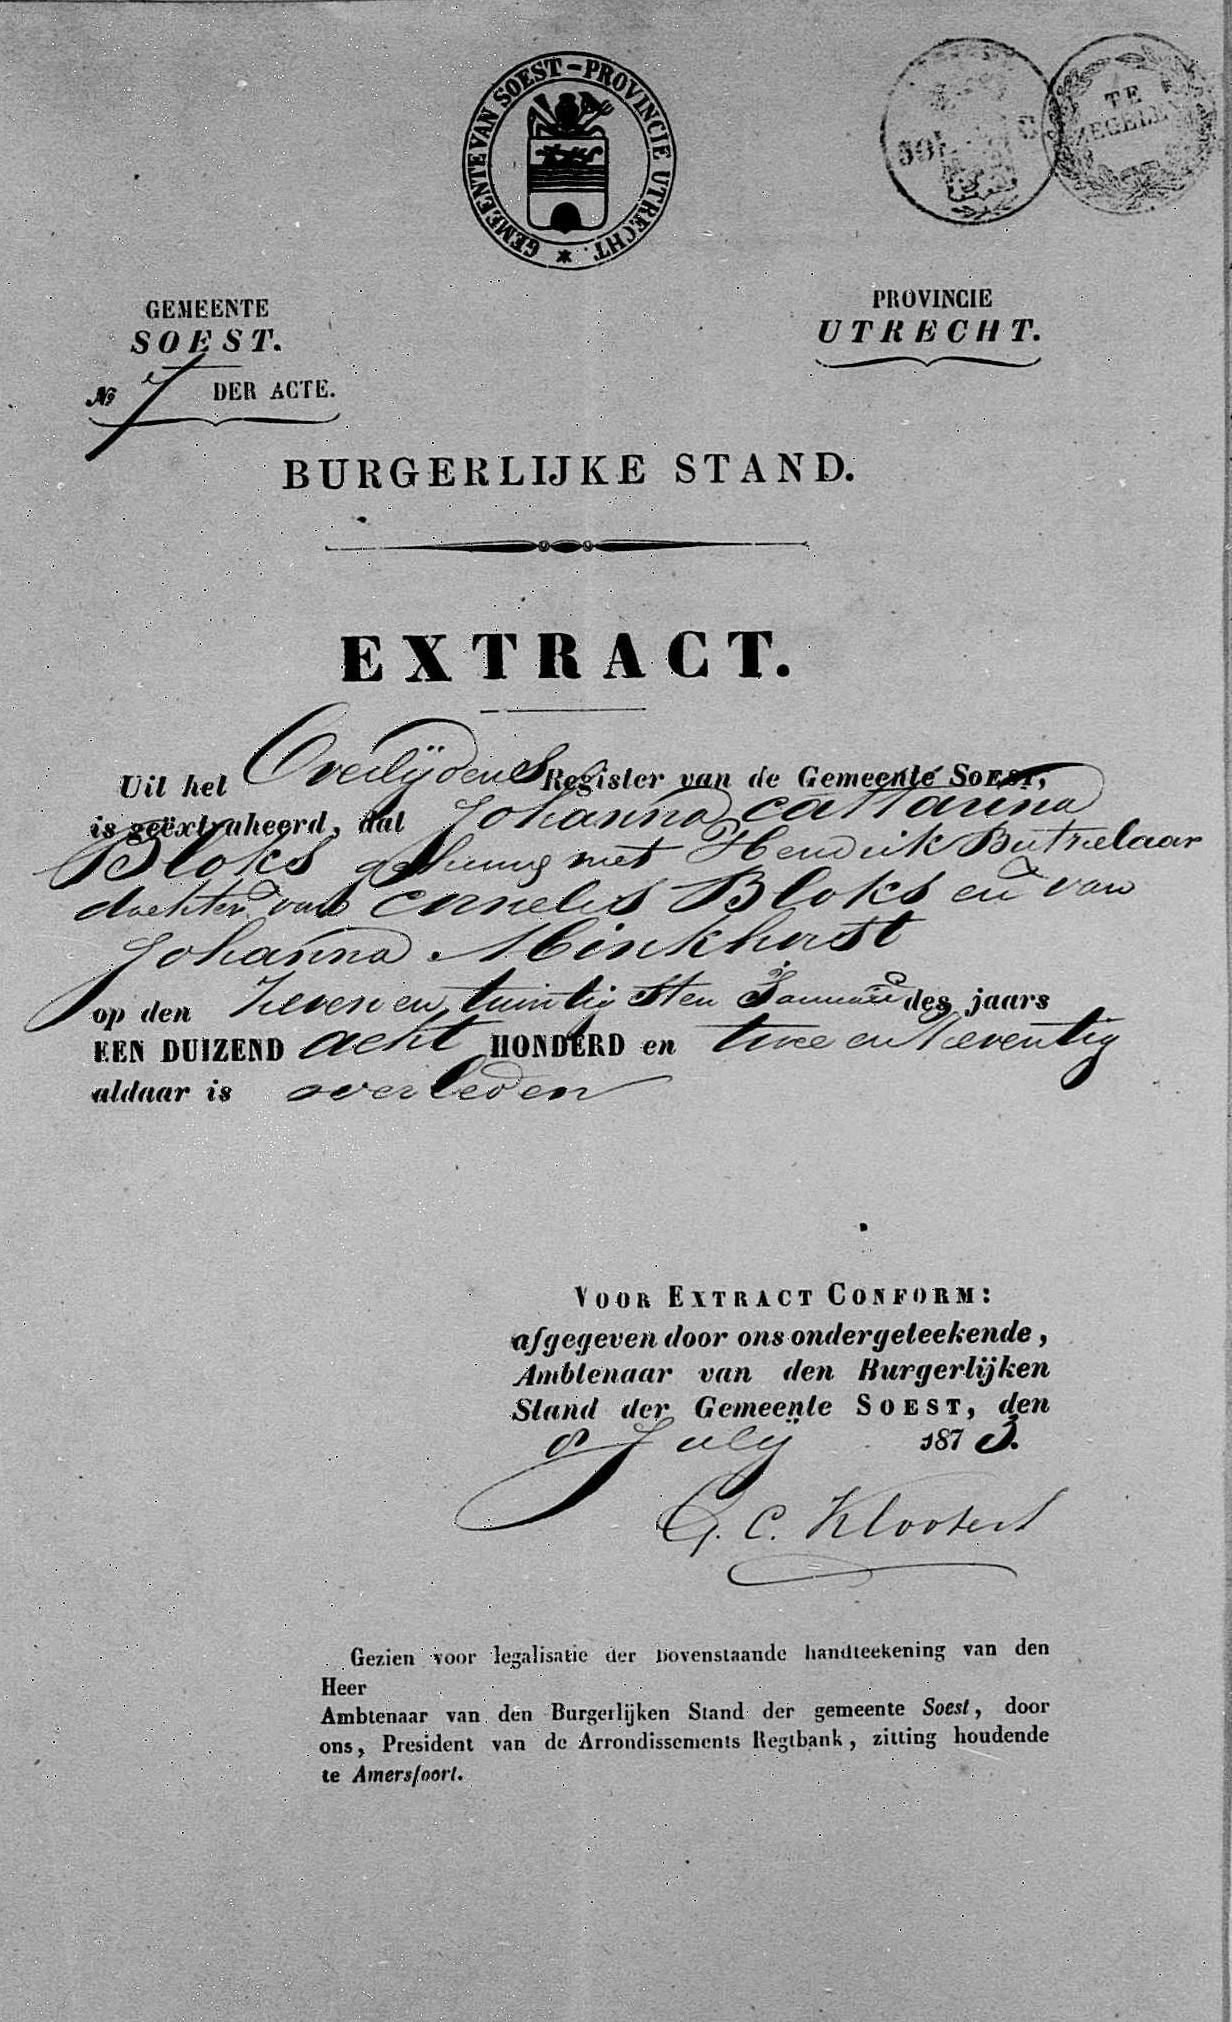 GEMEENTE VAN SOEST-PROVINCIE UTRECHT.
TE
ZEGELEN
GEMEENTE
SOEST.
PROVINCIE
UTRECHT.
No 7 DER ACTE.
BURGERLIJKE STAND.
EXTRACT.
Uit het Overlijdens Register van de Gemeente SOEST,
is geëxtraheerd, dat Johanna Catharina
Bloks gehuwd met Hendrik Butzelaar
dochter van Cornelis Bloks en van
Johanna Minkhorst
op den Zeven en twintigsten Januarij des jaars
EEN DUIZEND acht HONDERD en twee en Zeventig
aldaar is overleden
VOOR EXTRACT CONFORM:
afgegeven door ons ondergeteekende,
Ambtenaar van den Burgerlijken
Stand der Gemeente SOEST, den
8 July 1873.
G. C. Klooster
Gezien voor legalisatie der bovenstaande handteekening van den
Heer
Ambtenaar van den Burgerlijken Stand der gemeente Soest, door
ons, President van de Arrondissements Regtbank, zitting houdende
te Amersfoort.